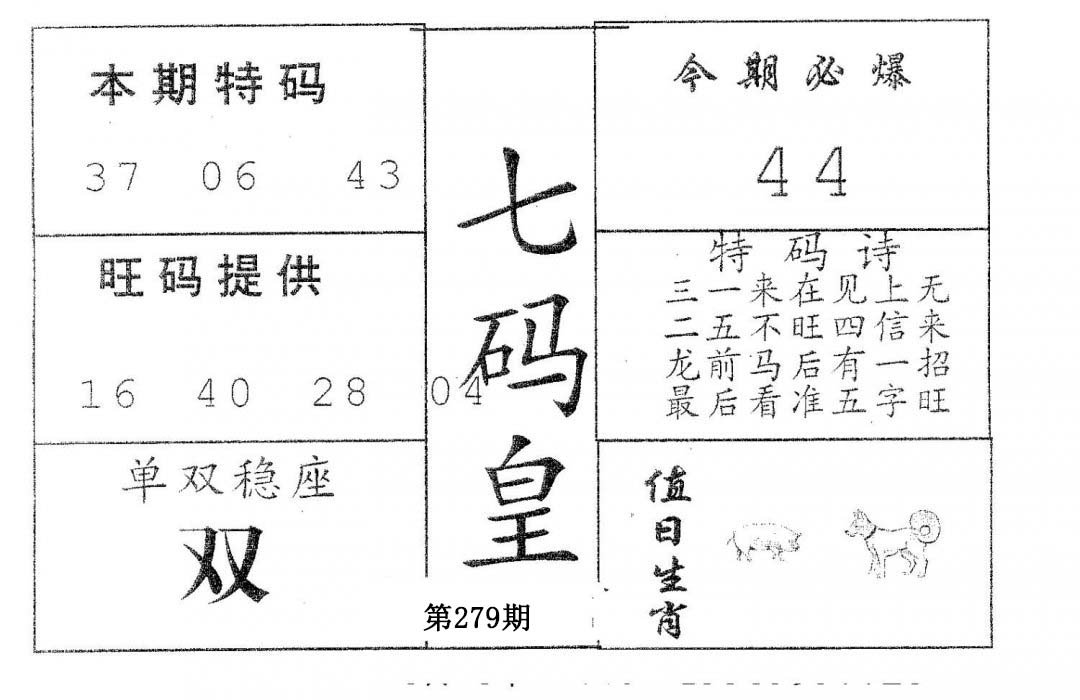 本期特码
37 06 43
旺码提供
16 40 28 04
单双稳座
双
七码皇
第279期
今期必爆
44
特码诗
三一来在见上无
二五不旺四信来
龙前马后有一招
最后看准五字旺
值日生肖